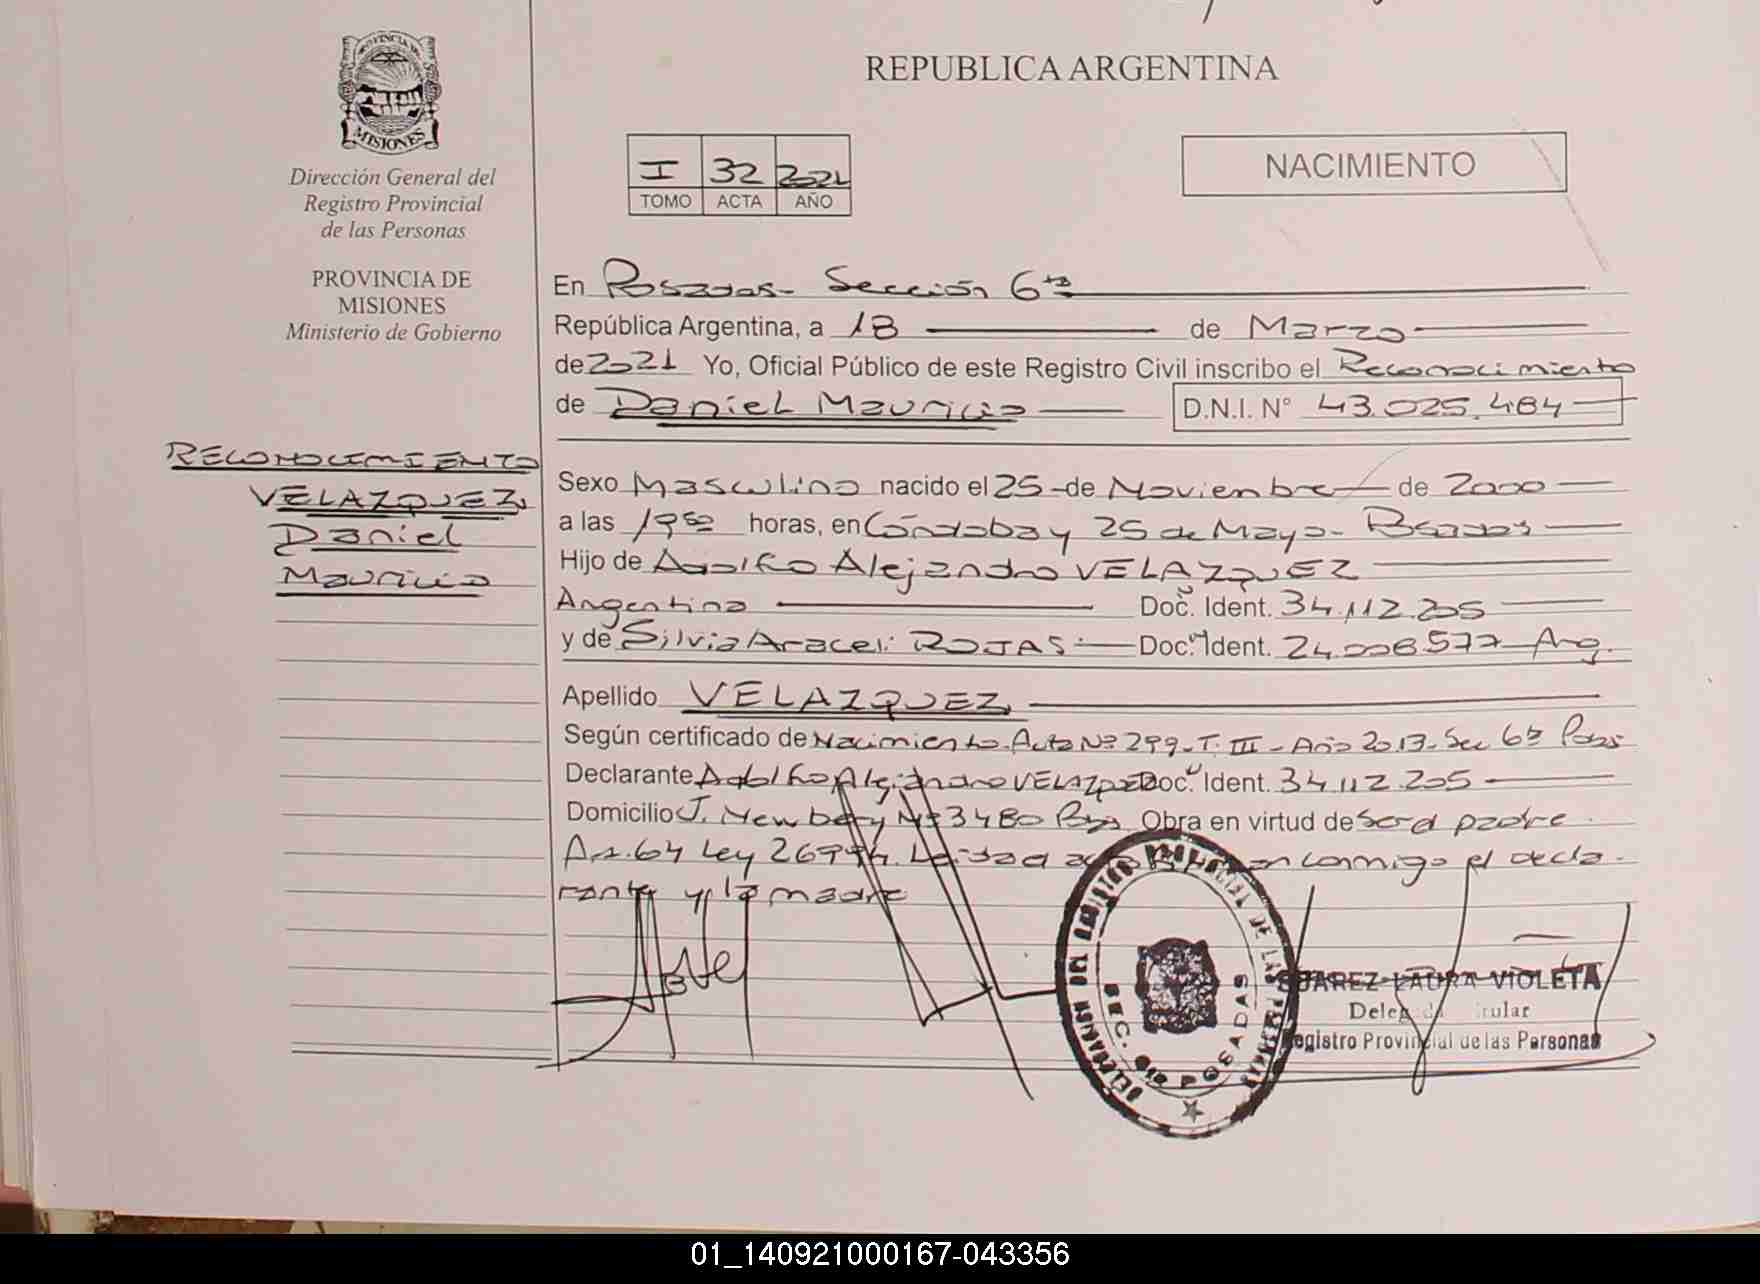 REPUBLICA ARGENTINA
PROVINCIA DE
MISIONES
Dirección General del
Registro Provincial
de las Personas
PROVINCIA DE
MISIONES
Ministerio de Gobierno
I 32 2021
TOMO ACTA AÑO
NACIMIENTO
En Posadas- Sección 6ta
República Argentina, a 18 de Marzo
de 2021 Yo, Oficial Público de este Registro Civil inscribo el Reconocimiento
de Daniel Mauricio D.N.I. N° 43.025.484
RECONOCIMIENTO
VELAZQUEZ,
Daniel
Mauricio
Sexo Masculino nacido el 25 de Noviembre de 2000
a las 19 horas, en Córdoba y 25 de Mayo- Posadas
Hijo de Adolfo Alejandro VELAZQUEZ
Argentino Doc. Ident. 34.112.205
y de Silvia Araceli ROJAS Doc. Ident. 24.006.577 Arg.
Apellido VELAZQUEZ,
Según certificado de Nacimiento. Acta N° 299- T. III - Año 2013- Sec 6ta Pdas
Declarante Adolfo Alejandro VELAZQUEZ Doc. Ident. 34.112.205
Domicilio J. Newbery N° 3480 Pdas Obra en virtud de ser el padre.
Art. 64 Ley 26994. Leida el acta conmigo el decla-
rante y la madre
DELEGACION DEL REGISTRO PROVINCIAL DE LAS PERSONAS
SEC. 6ta POSADAS
SUAREZ LAURA VIOLETA
Delegada Titular
Registro Provincial de las Personas
01_140921000167-043356